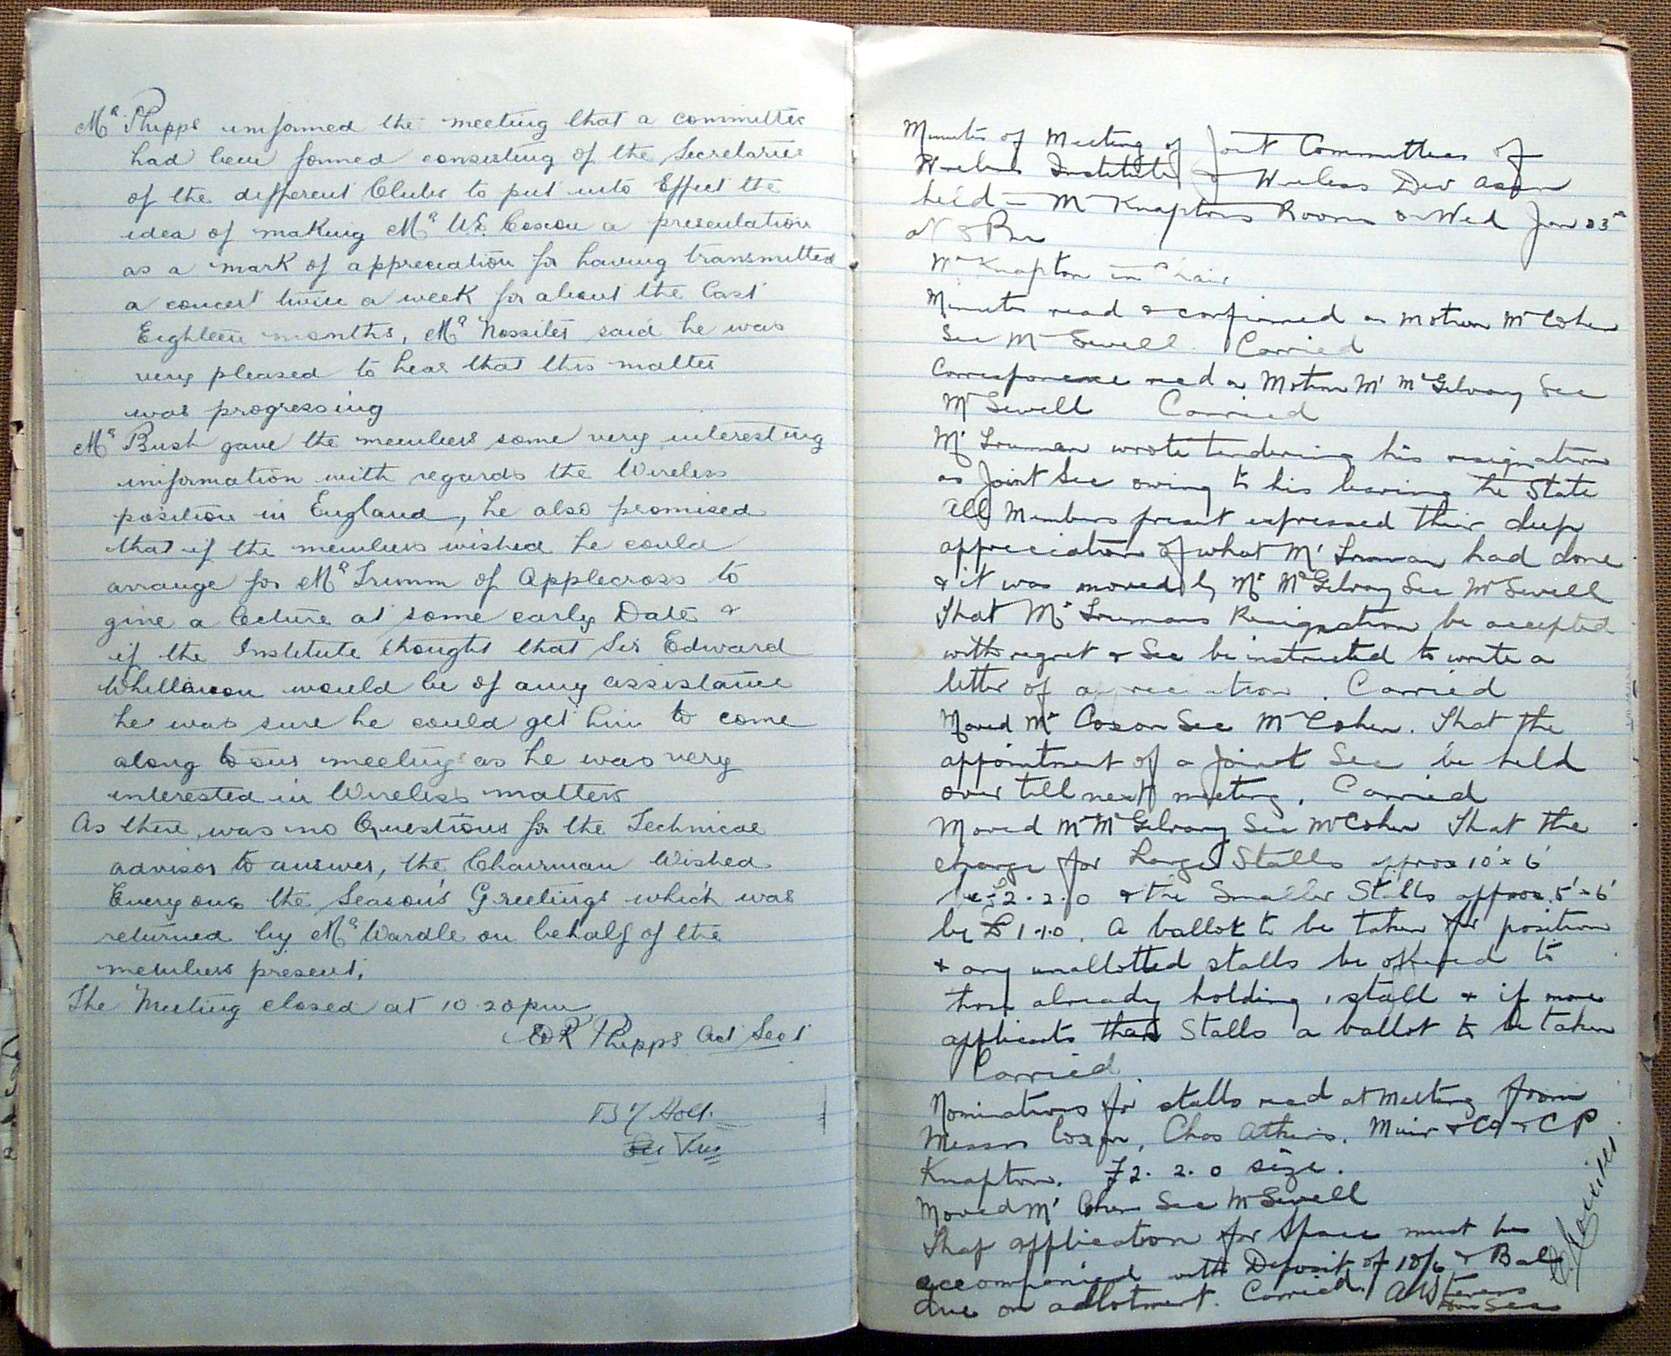 Mr Phipps imformed the meeting that a committee
had been formed consisting of the Secretaries
of the different Clubs to put into Effect the
idea of making Mr W.E. Coxon a presentation
as a mark of appreciation for having transmitted
a concert twice a week for about the last
Eighteen months, Mr Nossiter said he was
very pleased to hear that this matter
was progressing
Mr Bush gave the members some very interesting
imformation with regards the Wireless
position in England, he also promised
that if the members wished he could
arrange for Mr Trimm of Applecross to
give a lecture at some early Date &
if the Institute thought that Sir Edward
would be of any assistance
he was sure he could get him to come
along to our meeting as he was very
interested in Wireless matters
As there was no Questions for the Technical
advisor to answer, the Chairman Wished
Everyone the Season's Greetings which was
returned by Mr Wardle on behalf of the
members present.
The Meeting closed at 10.20pm
Phipps Act Sect
B Holt.
Minutes of Meeting of Joint Committees of
Wireless Institute & Wireless Dev Assn
held - Mr Knaptons Rooms on Wed Jan 23rd
at 8 Pm
Mr Knapton in Chair
Minutes read & confirmed on motion Mr Cohen
Sec Mr Sewell. Carried
Correspondence read on Motion Mr McGilvray Sec
Mr Sewell Carried
Mr wrote tendering his resignation
as Joint Sec owing to his leaving the State
All Members present expressed their deep
appreciation of what Mr had done
& it was moved by Mr McGilvray Sec Mr Sewell
That Mr Resignation be accepted
with regret & Sec be instructed to write a
letter of appreciation. Carried
Moved Mr Coxon Sec Mr Cohen. That the
appointment of a Joint Sec be held
over till next meeting. Carried
Moved Mr McGilvray Sec Mr Cohen That the
charge for Large Stalls approx 10' x 6'
be £2.2.0 & the Smaller Stalls approx 5' x 6'
be £1.1.0. A ballot to be taken for position
& any unallotted stalls be offered to
those already holding 1 stall & if more
applicants than Stalls a ballot to be taken
Carried
Nominations for stalls read at Meeting from
Messrs Coxon, Chas Atkins, Muir & Co & C P
Knapton. £2.2.0 size.
Moved Mr Cohen Sec Mr Sewell
That application for Space must be
accompanied with Deposit of 10/6 & Bal
due on allotment. Carried. Stevens
Hon Sec